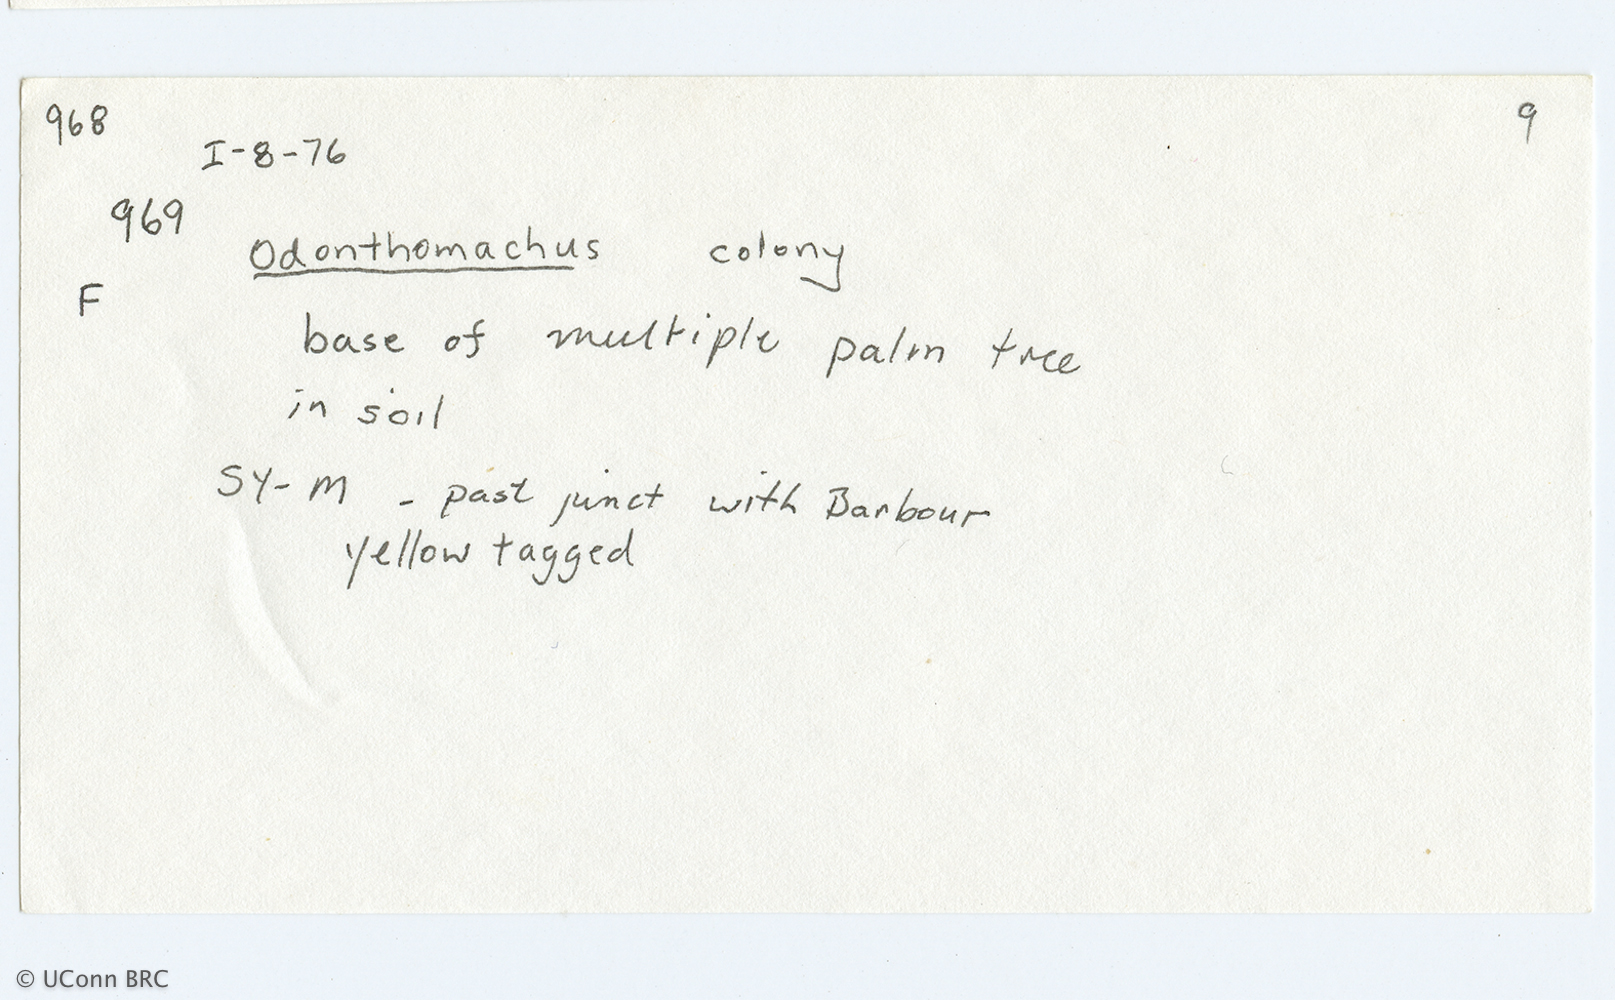 968
9
I-8-76
969
Odonthomachus colony
F
base of multiple palm tree
in soil
SY-M - past junct with Barbour
yellow tagged
© UConn BRC